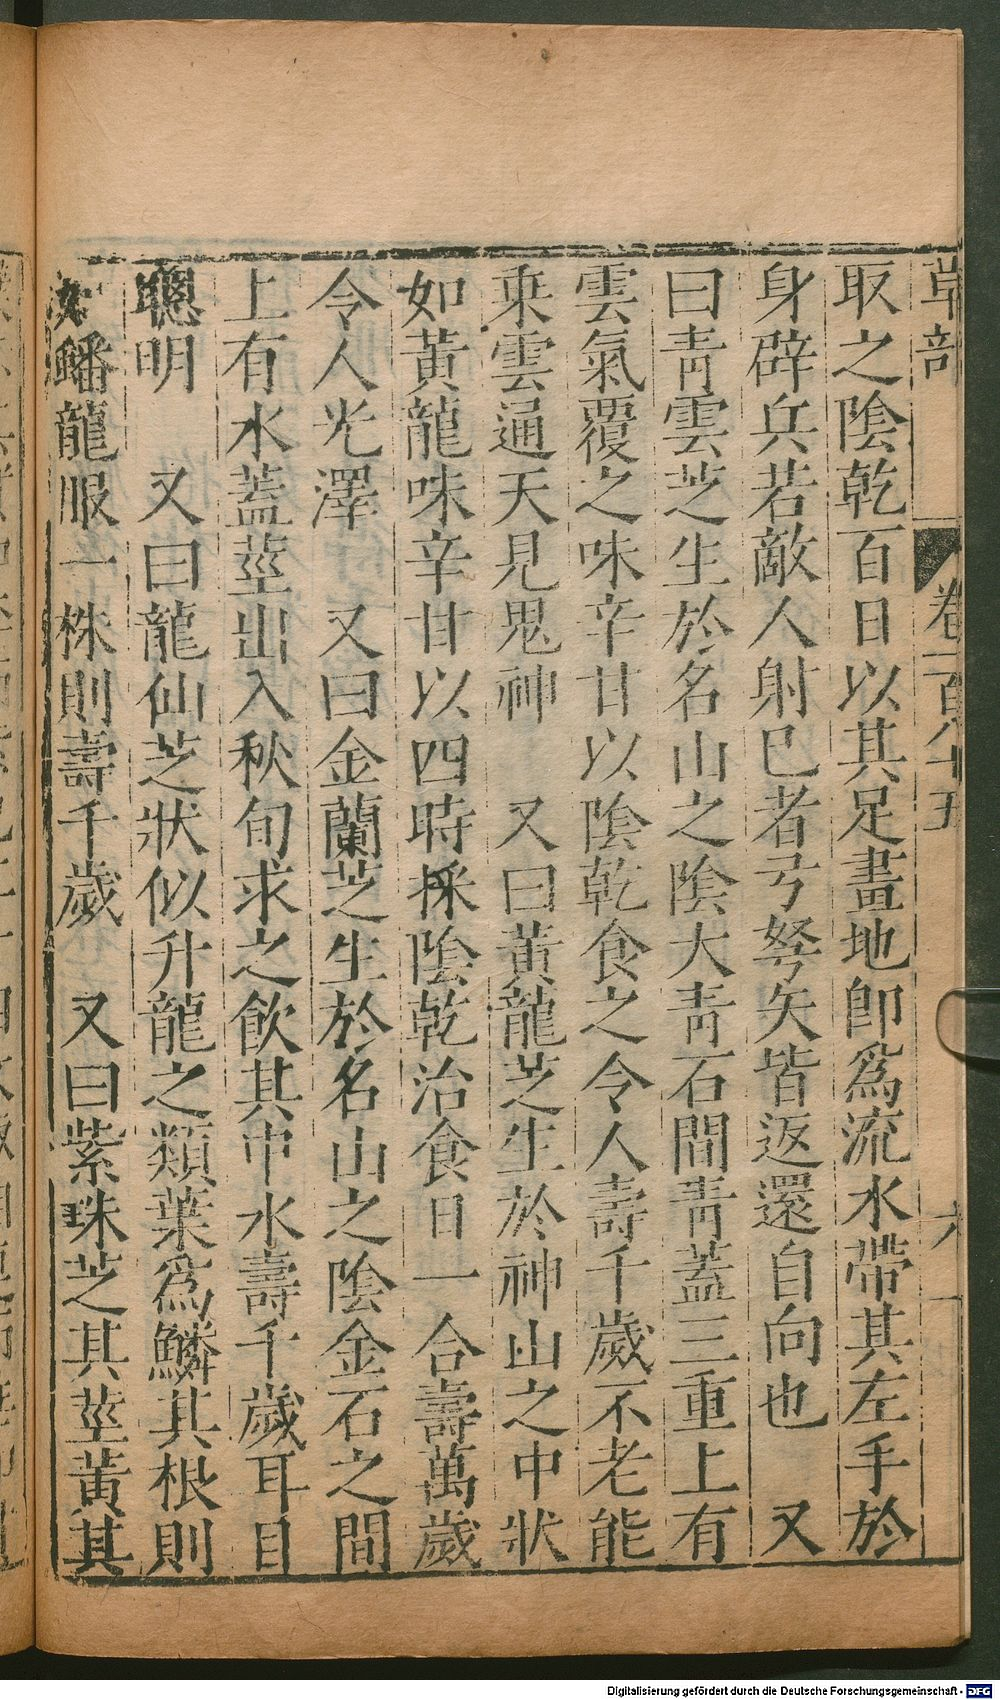 草部 卷一百八十五 六
取之陰乾百日以其足畫地卽爲流水帶其左手於
身辟兵若敵人射已者弓弩矢皆返還自向也 又
曰靑雲芝生於名山之陰大靑石間靑蓋三重上有
雲氣覆之味辛甘以陰乾食之令人壽千歲不老能
乘雲通天見鬼神 又曰黃龍芝生於神山之中狀
如黃龍味辛甘以四時採陰乾治食日一合壽萬歲
令人光澤 又曰金蘭芝生於名山之陰金石之間
上有水蓋莖出入秋旬求之飲其中水壽千歲耳目
聰明 又曰龍仙芝狀似升龍之類葉爲鱗其根則
如蟠龍服一株則壽千歲 又曰紫珠芝其莖黃其
Digitalisierung gefördert durch die Deutsche Forschungsgemeinschaft - DFG